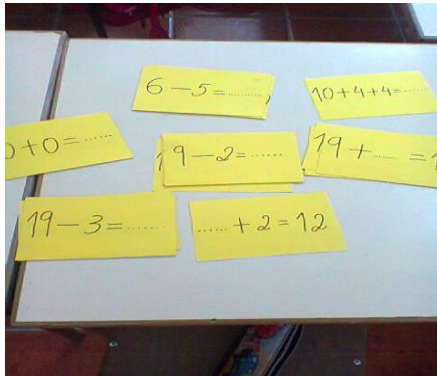 6-5=........
10+4+4=.......
0+0=......
9-2=......
19+...... =1
19-3=.......
...... +2=12